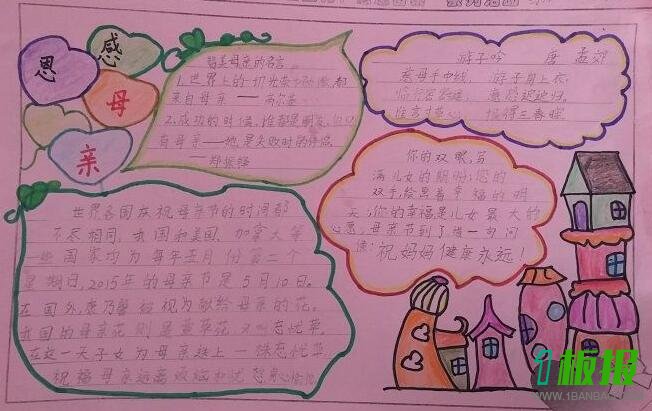 感
恩
母
亲
赞美母亲的名言。
1.世界上的一切光荣和骄傲,都
来自母亲——高尔基
2.成功的时候,谁都是朋友,但只
有母亲——她是失败时的伴侣
——郑振铎
游子吟 唐 孟郊
慈母手中线, 游子身上衣,
临行密密缝, 意恐迟迟归。
谁言寸草心, 报得三春晖
你的双眼,写
满儿女的期盼;您的
双手,绘出着幸福的明
天;你的幸福是儿女最大的
心愿,母亲节到了,道一句问
候:祝妈妈健康永远!
世界各国庆祝母亲节的时间都
不尽相同,我国和美国、加拿大等
一些国家均为每年五月份第二个
星期日,2015年的母亲节是5月10日。
在国外,康乃馨被视为献给母亲的花。
我国的母亲花则是萱草花 又叫忘忧草。
在这一天子女为母亲送上一株忘忧草
祝福母亲远离烦恼和忧愁
1板报
WWW.1BANBAO.COM